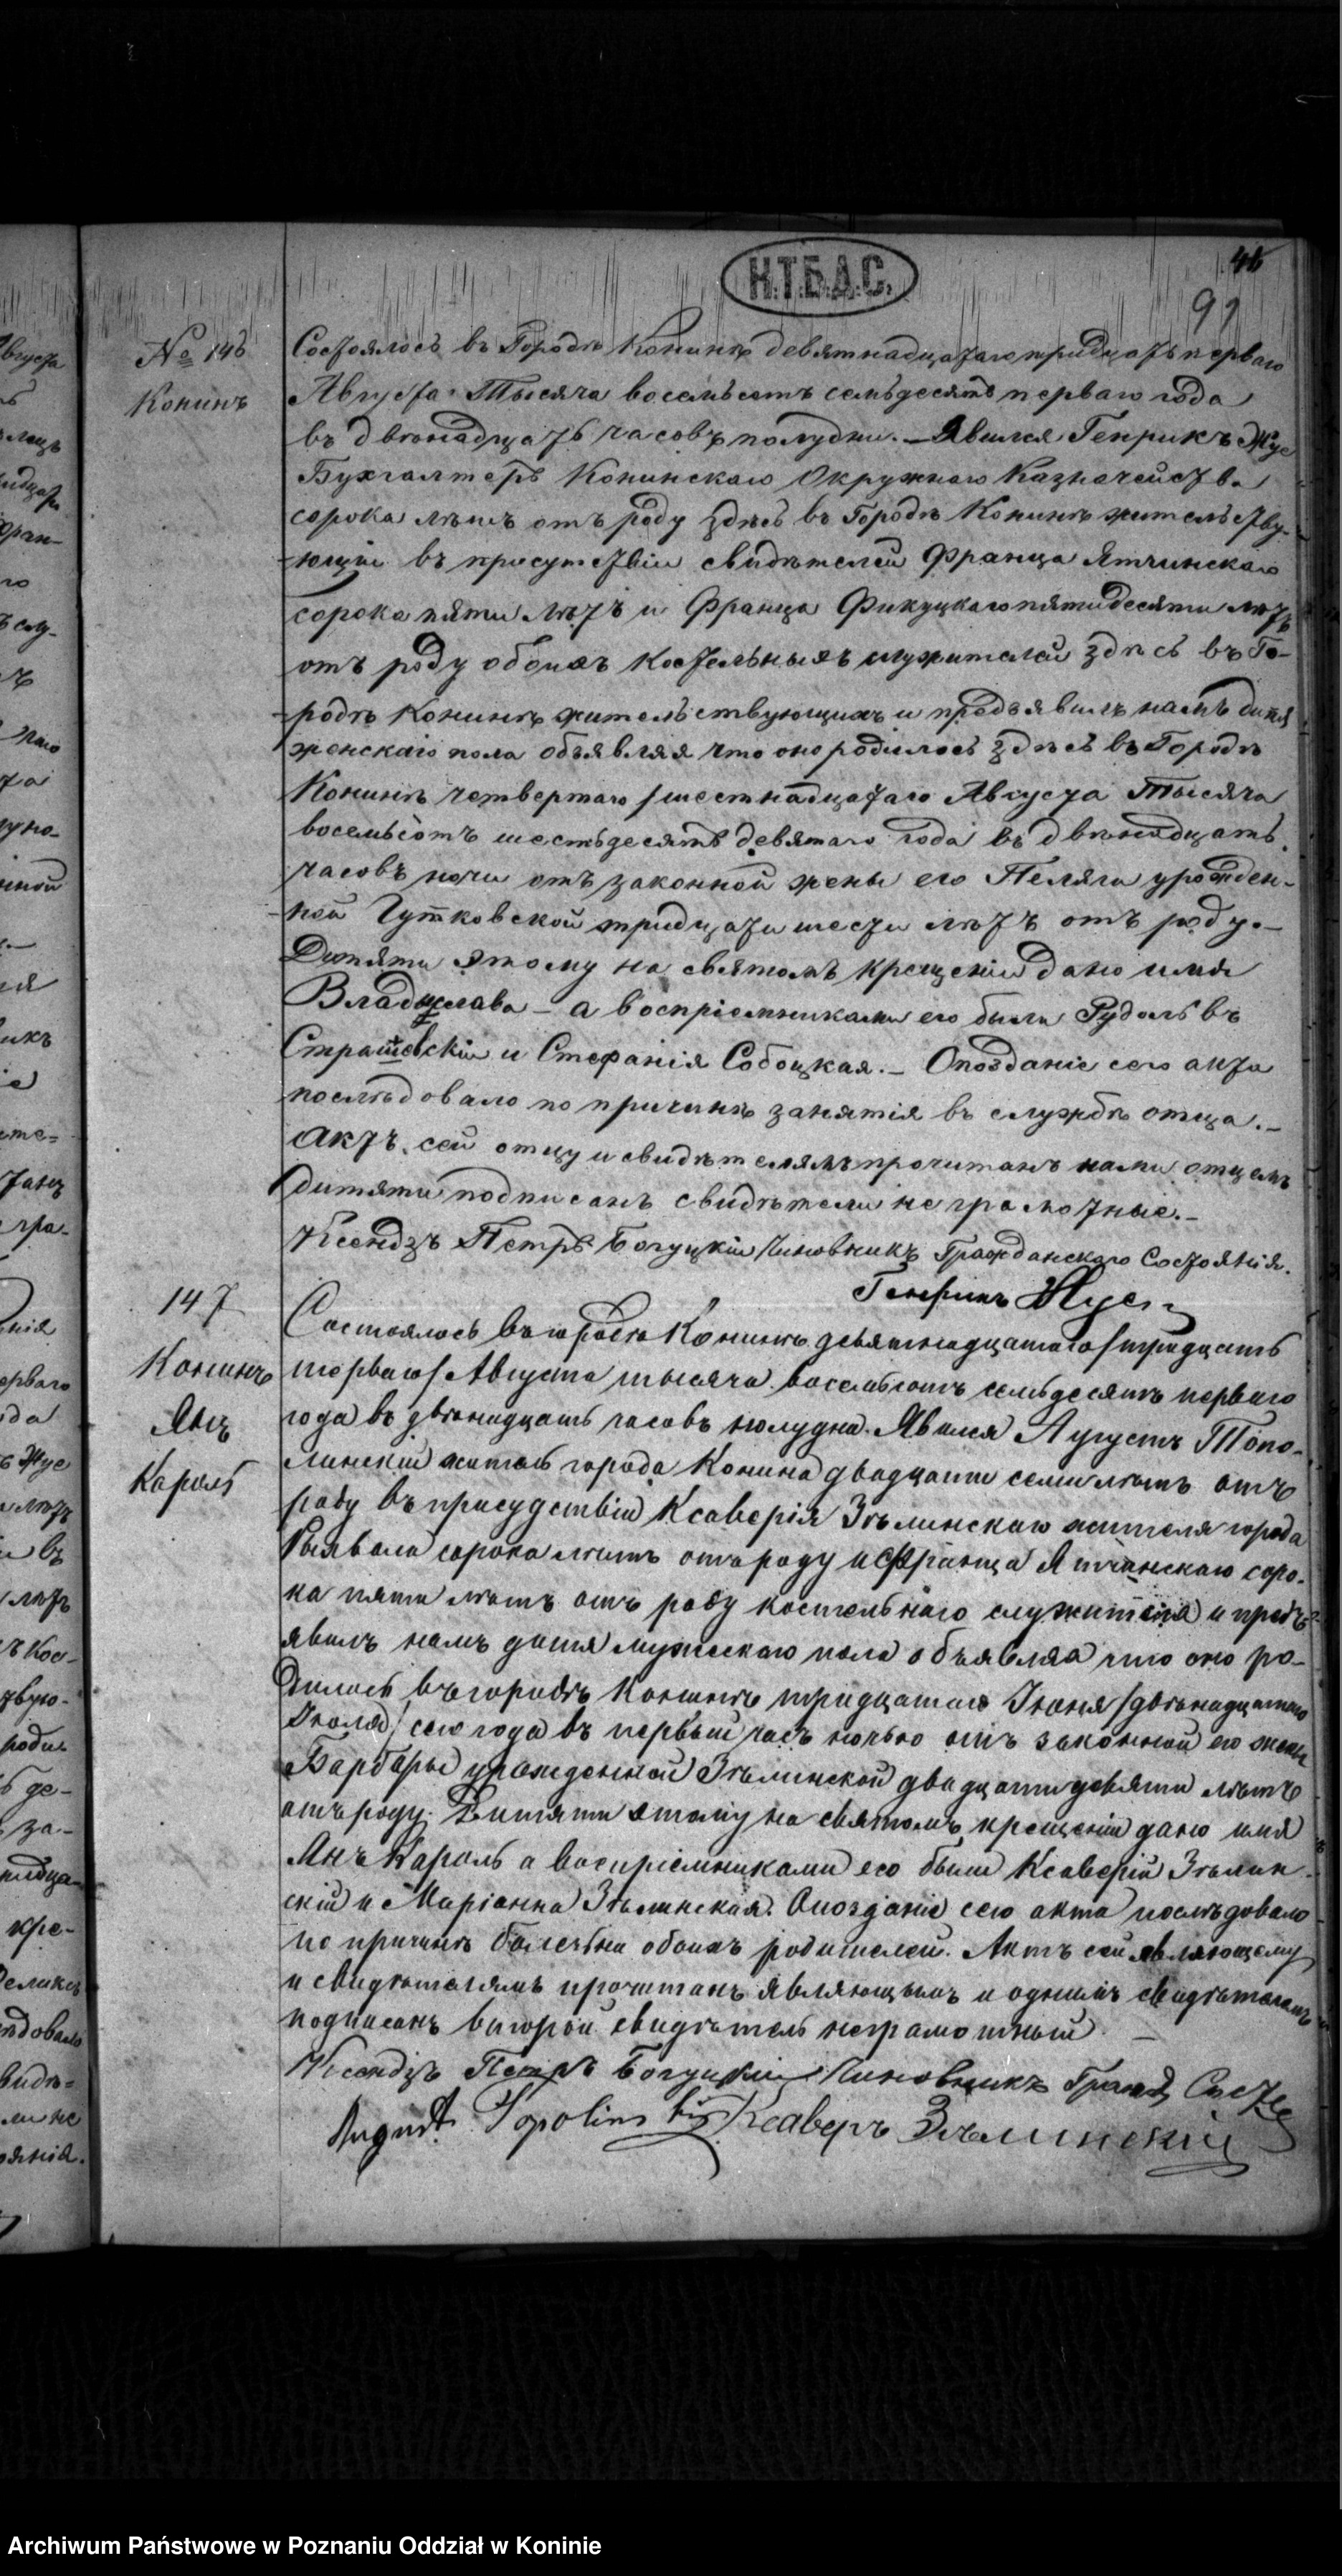 46
Н.Т.Б.Д.С.
91
№ 146
Конинъ
Состоялось въ Городѣ Конинѣ девятнадцатаго тридцать перваго
Августа Тысяча восемьсотъ семьдесятъ перваго года
въ двѣнадцать часовъ полудни. – Явился Генрикъ Жус
Бухгалтеръ Конинскаго Окружнаго Казначейства
сорока лѣтъ отъ роду здѣсь въ Городѣ Конинѣ жительству-
ющій въ присутствіи свидѣтелей Франца Ятчинскаго
сорока пяти лѣтъ и Франца Фикуцкаго пятидесяти лѣтъ
отъ роду обоихъ костельныхъ служителей здѣсь въ Го-
родѣ Конинѣ жительствующихъ и предъявилъ намъ дитя
женскаго пола объявляя что оно родилось здѣсь въ Городѣ
Конинѣ четвертаго /шестнадцатаго Августа Тысяча
восемьсотъ шестьдесятъ девятаго года въ двѣнадцать
часовъ ночи отъ законной жены его Пеляги урожден-
ной Гутковской тридцати шести лѣтъ отъ роду. –
Дитяти этому на святомъ крещеніи дано имя
Владислава – а воспріемниками его были Рудольвъ
Страшевскій и Стефанія Собоцкая. – Опозданіе сего акта
послѣдовало по причинѣ занятія въ службѣ отца. –
Актъ сей отцу и свидѣтелямъ прочитанъ нами отцемъ
дитяти подписанъ свидѣтели неграмотные. –
Ксендзъ Петръ Богуцкій Чиновникъ Гражданскаго Состоянія.
Генрикъ
147
Конинъ
Янъ
Кароль
Состоялось въ городѣ Конинѣ девятнадцатаго /тридцать
перваго/ Августа тысяча восемьсотъ семьдесятъ перваго
года въ двѣнадцать часовъ полудня. Явился Аугустъ Топо-
линскій житель города Конина двадцати семи лѣтъ отъ
роду въ присудствіи Ксаверія Зѣлинскаго жителя города
сорока лѣтъ отъ роду и Франца Ятчинскаго соро-
ка пяти лѣтъ отъ роду костельнаго служителя и предъ-
явилъ намъ дитя мужескаго пола объявляя что оно ро-
дилось въ городѣ Конинѣ тридцатаго Іюня /двѣнадцатаго
Іюля/ сего года въ первый часъ ночью отъ законной его жены
Барбары урожденной Зѣлинской двадцати девяти лѣтъ
отъ роду. Дитяти этому на святомъ крещеніи дано имя
Янъ Кароль а воспріемниками его были Ксаверій Зѣлин-
скій и Маріанна Зѣлинская. Опозданіе сего акта послѣдовало
по причинѣ болезни обоихъ родителей. Актъ сей являющему
и свидѣтелямъ прочитанъ являющымъ и однимъ свидѣтелемъ
подписанъ второй свидѣтель неграмотный –
Ксендзъ Петръ Богуцкій Чиновникъ Гражд Состо
August Topolinski Ксаверъ Зѣлинскій
Archiwum Państwowe w Poznaniu Oddział w Koninie